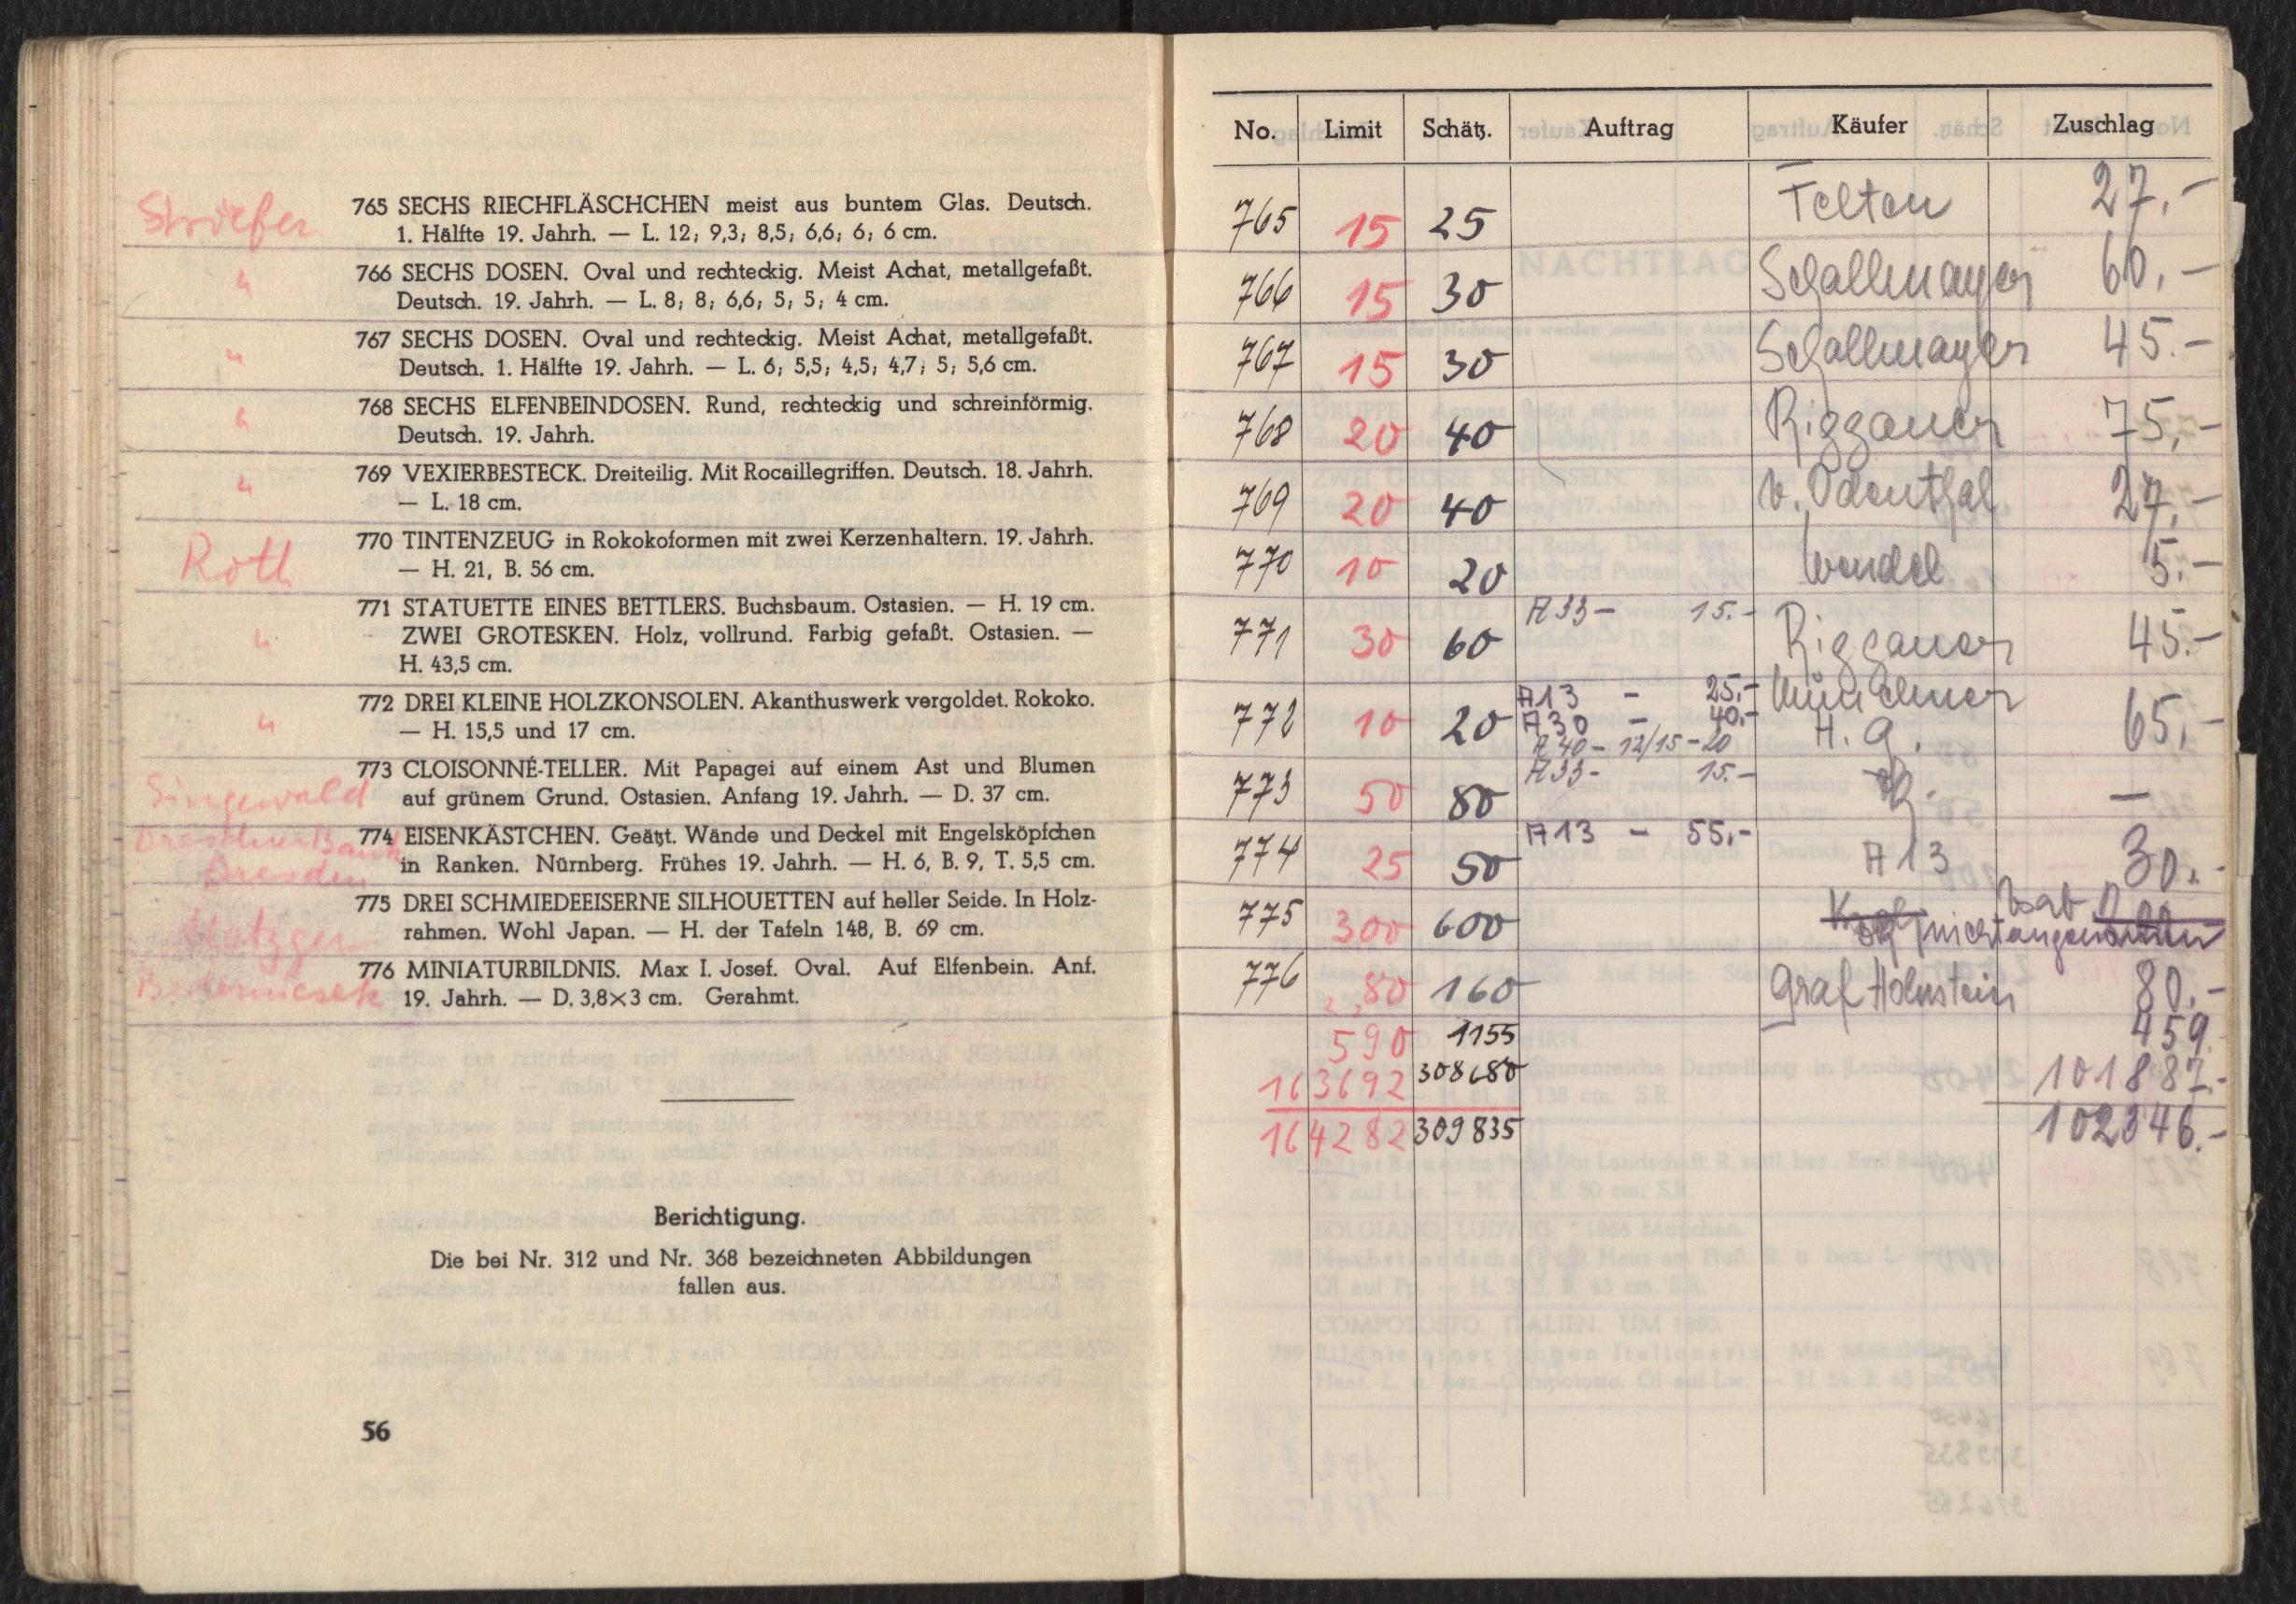 Striefer
765 SECHS RIECHFLÄSCHCHEN meist aus buntem Glas. Deutsch.
1. Hälfte 19. Jahrh. — L. 12; 9,3; 8,5; 6,6; 6; 6 cm.
"
766 SECHS DOSEN. Oval und rechteckig. Meist Achat, metallgefaßt.
Deutsch. 19. Jahrh. — L. 8; 8; 6,6; 5; 5; 4 cm.
"
767 SECHS DOSEN. Oval und rechteckig. Meist Achat, metallgefaßt.
Deutsch. 1. Hälfte 19. Jahrh. — L. 6; 5,5; 4,5; 4,7; 5; 5,6 cm.
"
768 SECHS ELFENBEINDOSEN. Rund, rechteckig und schreinförmig.
Deutsch. 19. Jahrh.
"
769 VEXIERBESTECK. Dreiteilig. Mit Rocaillegriffen. Deutsch. 18. Jahrh.
— L. 18 cm.
Roth
770 TINTENZEUG in Rokokoformen mit zwei Kerzenhaltern. 19. Jahrh.
— H. 21, B. 56 cm.
"
771 STATUETTE EINES BETTLERS. Buchsbaum. Ostasien. — H. 19 cm.
ZWEI GROTESKEN. Holz, vollrund. Farbig gefaßt. Ostasien. —
H. 43,5 cm.
"
772 DREI KLEINE HOLZKONSOLEN. Akanthuswerk vergoldet. Rokoko.
— H. 15,5 und 17 cm.
Singewald
773 CLOISONNÉ-TELLER. Mit Papagei auf einem Ast und Blumen
auf grünem Grund. Ostasien. Anfang 19. Jahrh. — D. 37 cm.
Dresdner Bank
Dresden
774 EISENKÄSTCHEN. Geätzt. Wände und Deckel mit Engelsköpfchen
in Ranken. Nürnberg. Frühes 19. Jahrh. — H. 6, B. 9, T. 5,5 cm.
Metzger
775 DREI SCHMIEDEEISERNE SILHOUETTEN auf heller Seide. In Holz-
rahmen. Wohl Japan. — H. der Tafeln 148, B. 69 cm.
776 MINIATURBILDNIS. Max I. Josef. Oval. Auf Elfenbein. Anf.
19. Jahrh. — D. 3,8×3 cm. Gerahmt.
Berichtigung.
Die bei Nr. 312 und Nr. 368 bezeichneten Abbildungen
fallen aus.
56
No. Limit Schätz. Auftrag Käufer Zuschlag
765 15 25 Felten 27.-
766 15 30 Schallmayer 60.-
767 15 30 Schallmayer 45.-
768 20 40 Riggauer 75.-
769 20 40 v. Odenthal 27.-
770 10 20 Wendel 5.-
771 30 60 A 33 - 15.- Riggauer 45.-
772 10 20 A 13 - 25.- Münchner 65.-
A 30 - 40.- H. G.
A 40 - 12/15 - 20
773 50 80 A 33 - 15.- —
774 25 50 A 13 - 55.- A 13 30.-
775 300 600 nicht angenommen
776 80 160 Graf Holnstein 80.-
590 1155 459.
163692 308680 101887.-
164282 309835 102346.-